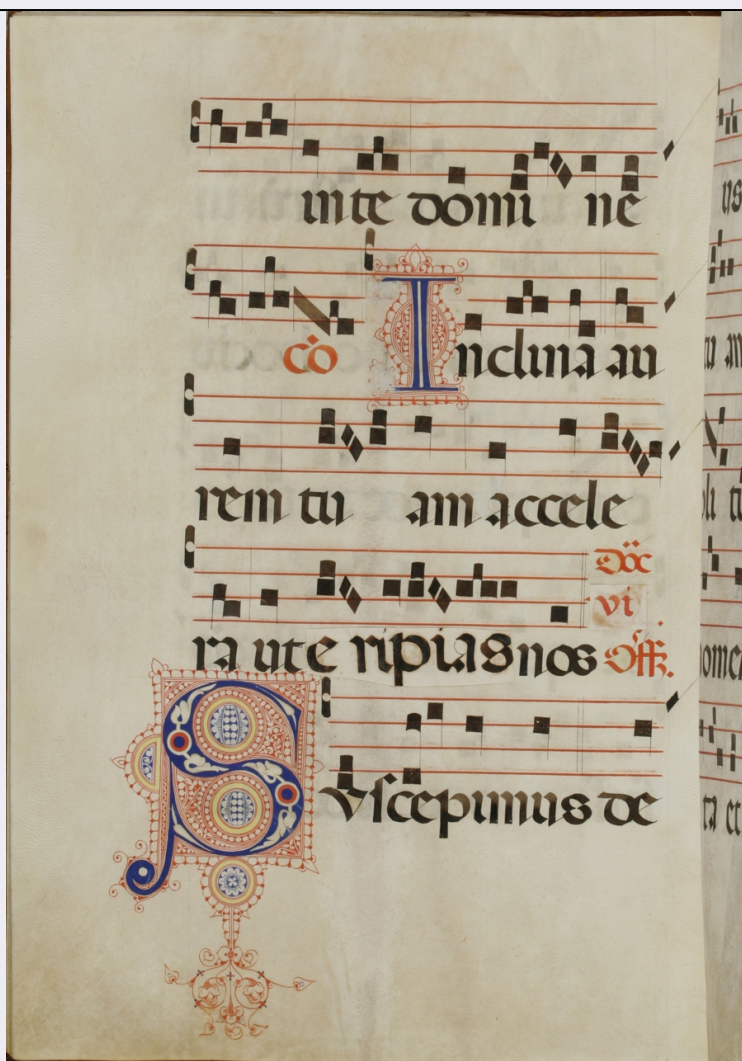 in te domi ne
cō Inclina au
rem tu am accele
Dōc
vi
ra ut e ripias nos Off.
Suscepimus de